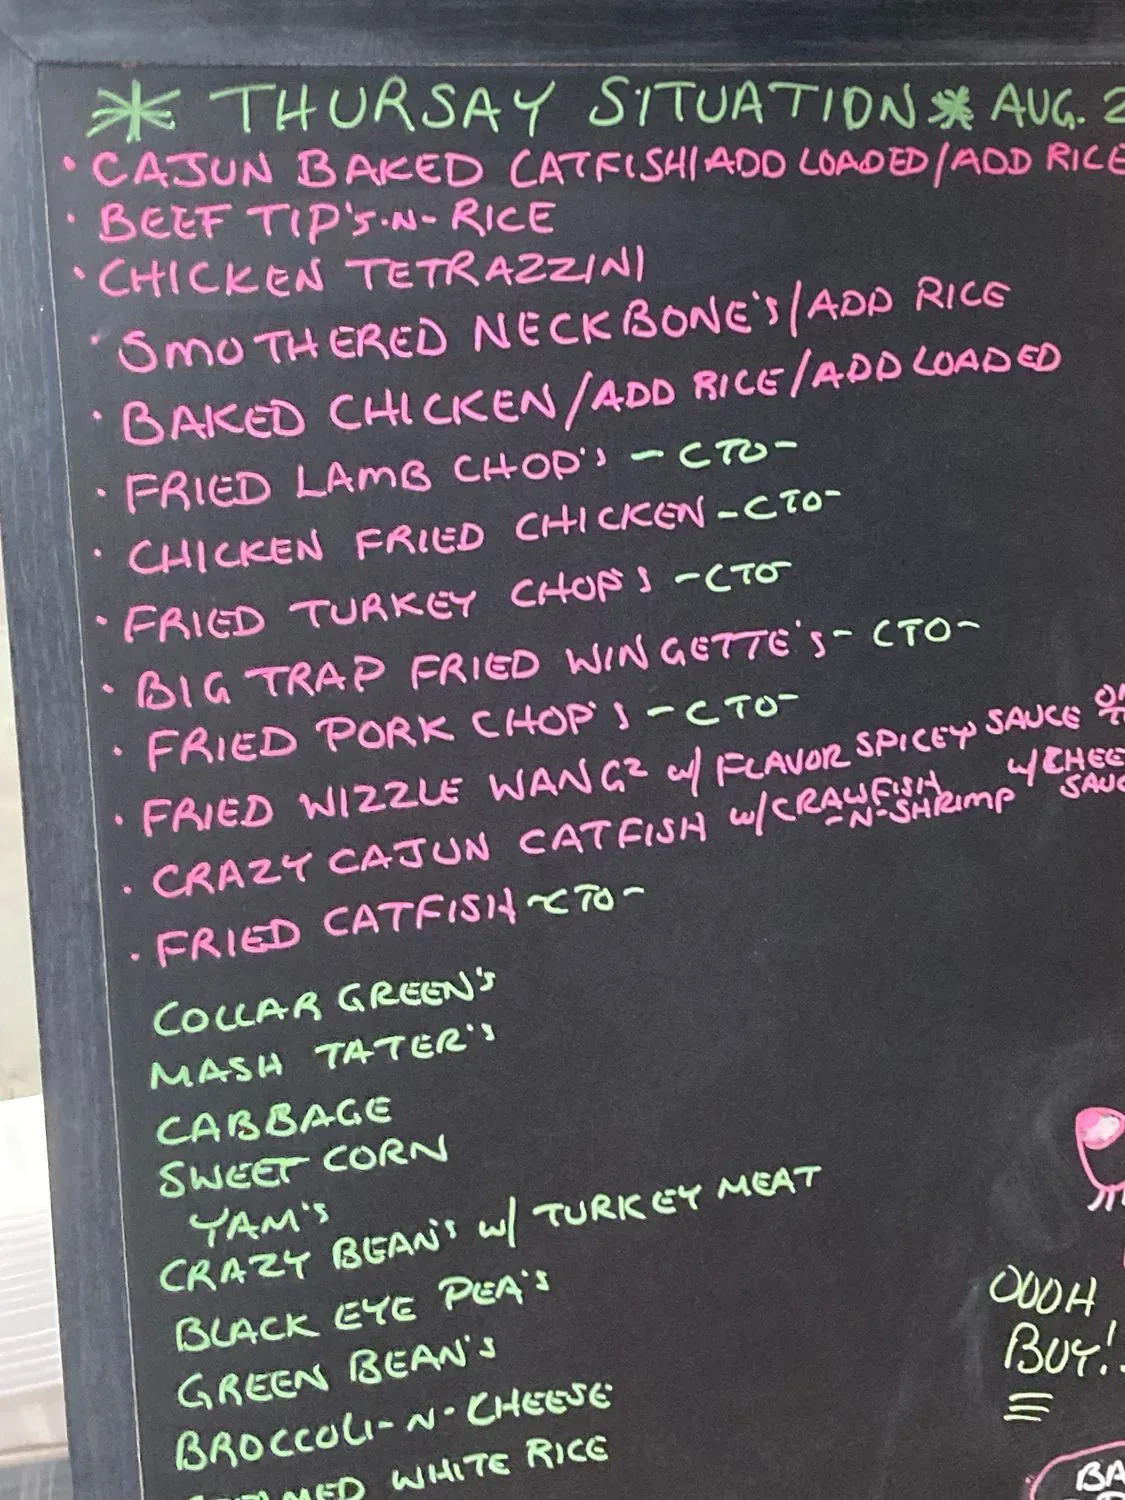 * THURSAY SITUATION * AUG. 2
• CAJUN BAKED CATFISH/ADD LOADED/ADD RICE
• BEEF TIP'S-N-RICE
• CHICKEN TETRAZZINI
• SMOTHERED NECKBONE'S/ADD RICE
• BAKED CHICKEN/ADD RICE/ADD LOADED
• FRIED LAMB CHOP'S -CTO-
• CHICKEN FRIED CHICKEN -CTO-
• FRIED TURKEY CHOP'S -CTO
• BIG TRAP FRIED WINGETTE'S -CTO-
• FRIED PORK CHOP'S -CTO-
• FRIED WIZZLE WANGZ w/ FLAVOR SPICEY SAUCE
• CRAZY CAJUN CATFISH w/CRAWFISH -N-SHRIMP w/CHEE SAUC
• FRIED CATFISH -CTO-
COLLAR GREEN'S
MASH TATER'S
CABBAGE
SWEET CORN
YAM'S
CRAZY BEAN'S w/ TURKEY MEAT
BLACK EYE PEA'S
GREEN BEAN'S
BROCCOLI-N-CHEESE
WHITE RICE
OOOH
BUY!
BA